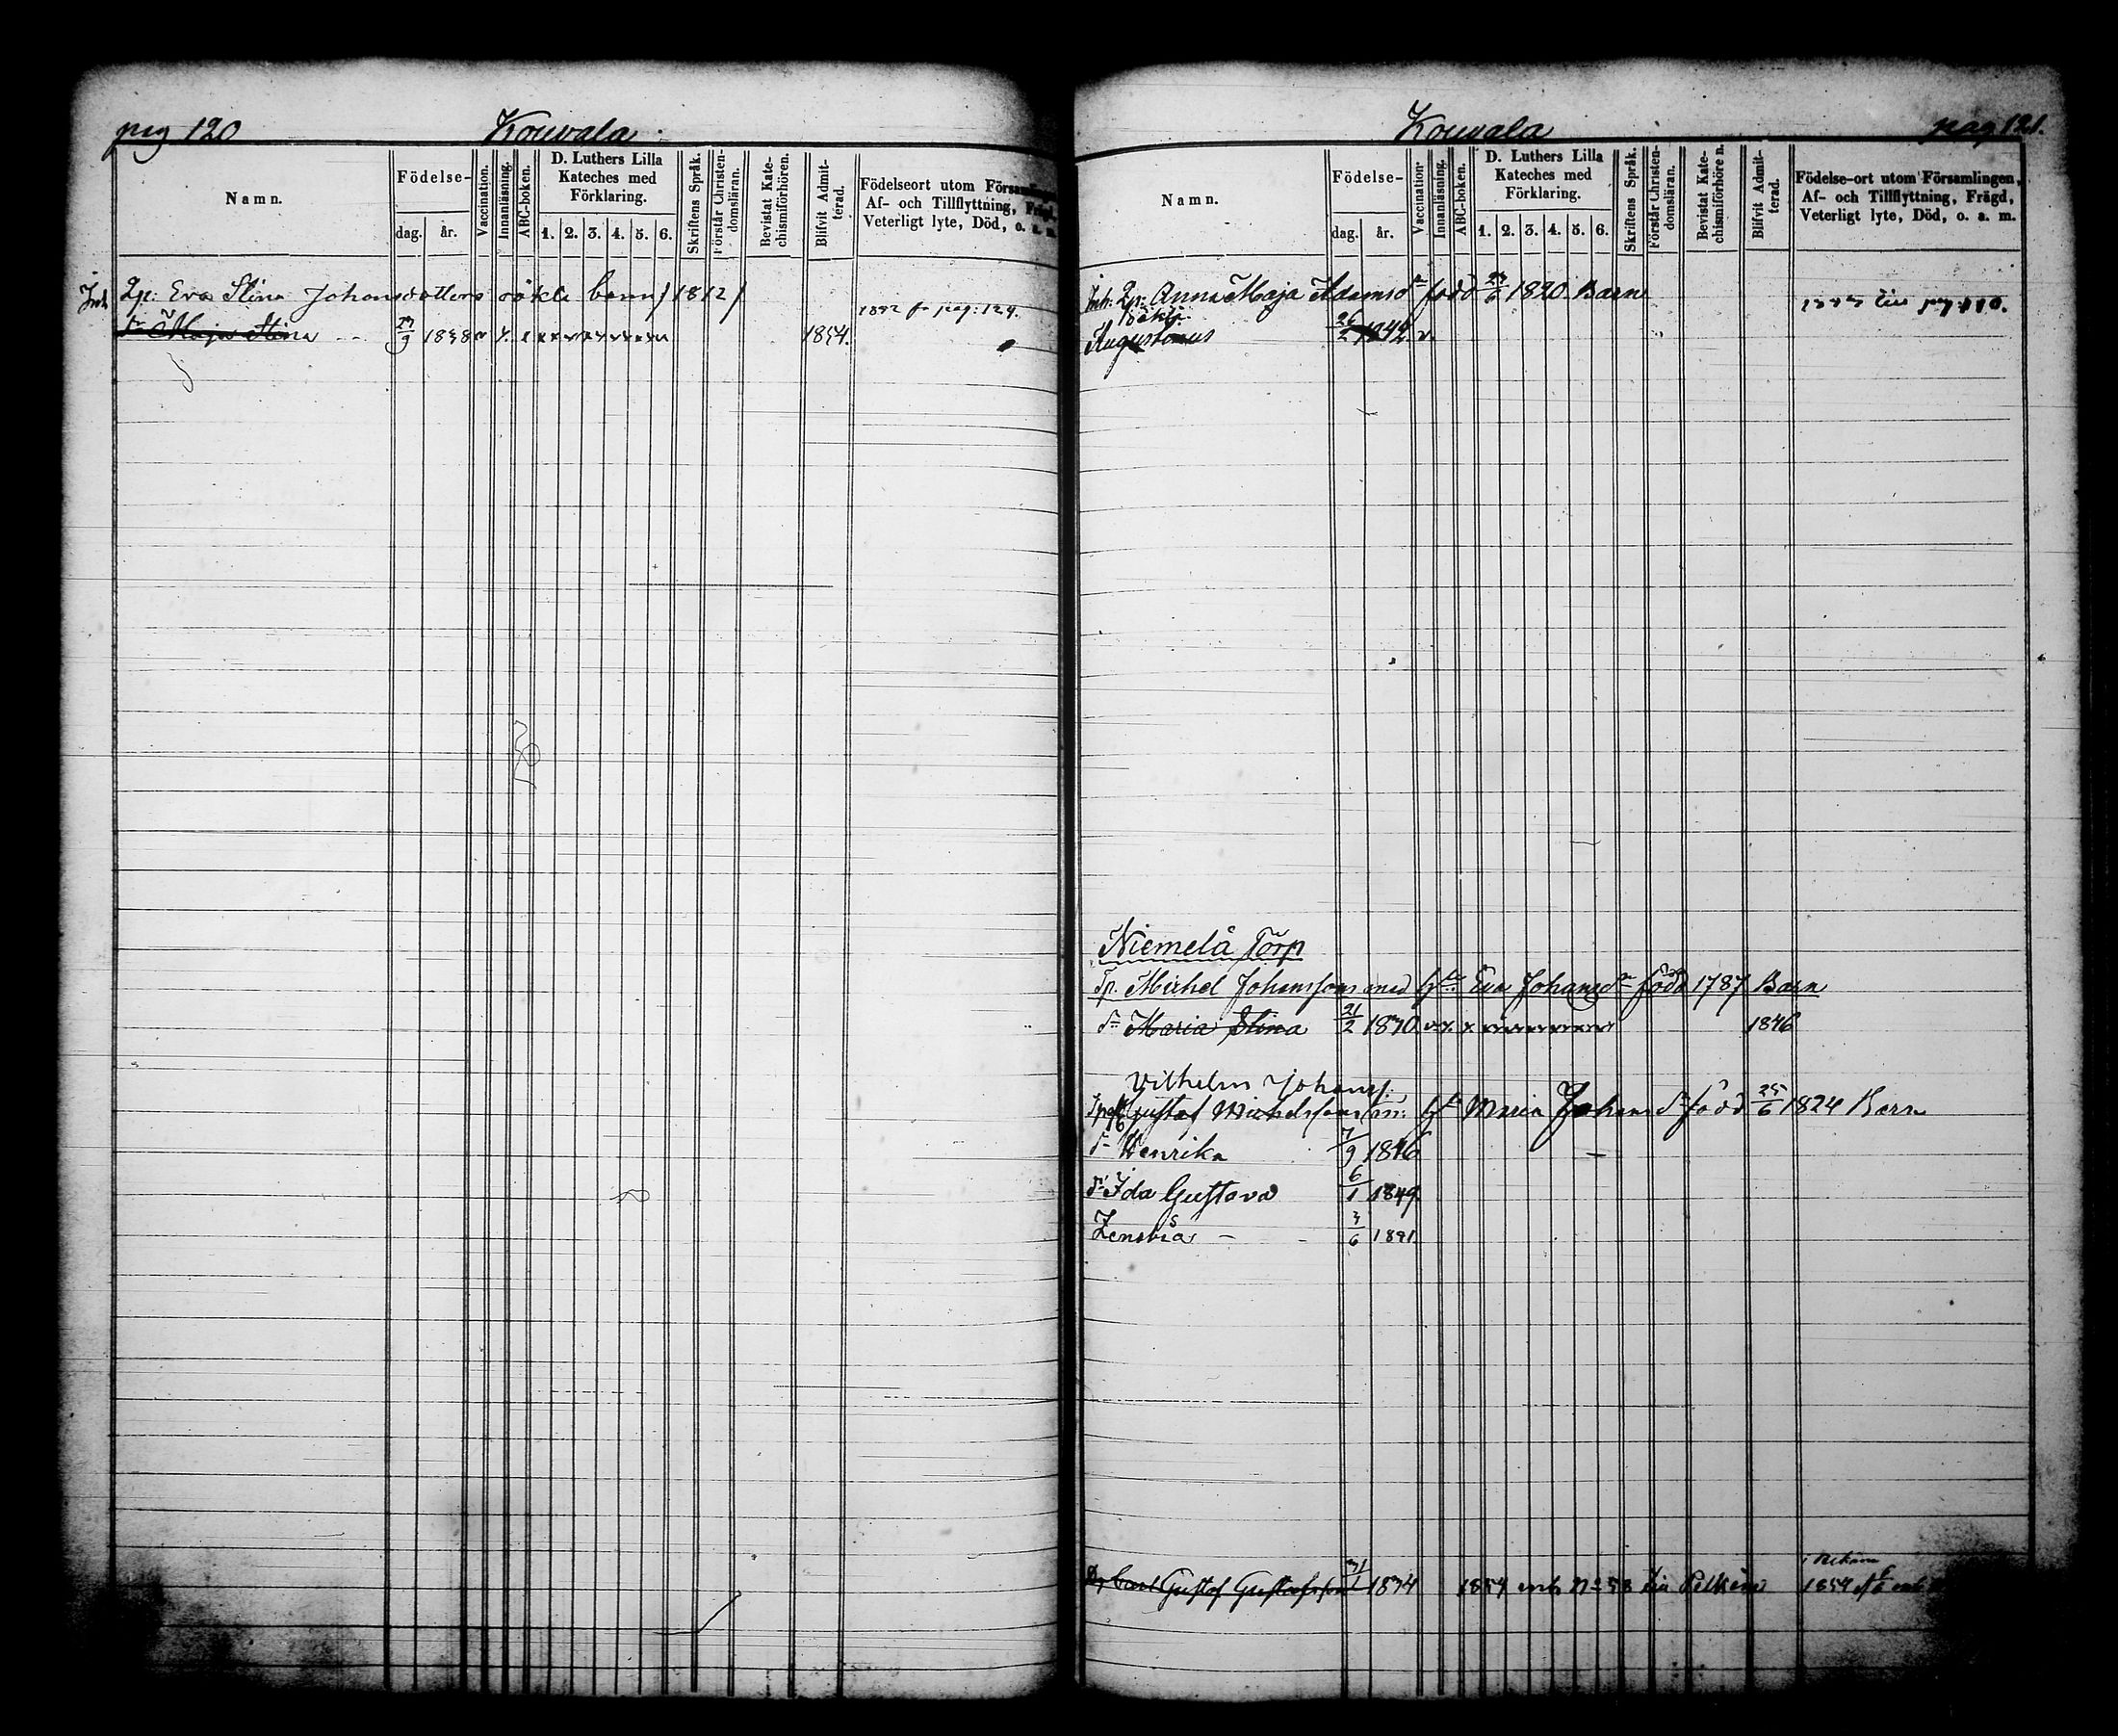 pag 120
Kouvala
Namn.
Födelse-
dag.
år.
Vaccination.
Innanläsning.
ABC-boken.
D. Luthers Lilla
Kateches med
Förklaring.
1. 2. 3. 4. 5. 6.
Skriftens Språk.
Förstår Christen-
domsläran.
Bevistat Kate-
chismiförhören.
Blifvit Admit-
terad.
Födelseort utom Församlingen,
Af- och Tillflyttning, Frägd,
Veterligt lyte, Död, o. a. m.
Inh Qp: Eva Stina Johansdotters oäkta barn /1812/
1852 fr pag: 124.
Maja Stina 1838 1854.
Kouvala
pag 121.
Namn.
Födelse-
dag.
år.
Vaccination.
Innanläsning.
ABC-boken.
D. Luthers Lilla
Kateches med
Förklaring.
1. 2. 3. 4. 5. 6.
Skriftens Språk.
Förstår Christen-
domsläran.
Bevistat Kate-
chismiförhören.
Blifvit Admit-
terad.
Födelse-ort utom Församlingen,
Af- och Tillflyttning, Frägd,
Veterligt lyte, Död, o. a. m.
Inh. Qp: Anna Maja Adamsdr född 1820. Barn
oäkta
Augustinus 26/2
Niemelä Torp
Tp. Michel Johansson med h Eva Johansdr född 1787 Barn
dr Maria Stina 21/2 1830 1846
Vilhelm Johanss.
Gustaf Michelsson m: h Maria Johansdr född 25/6 1824 Barn
dr Henrika 7/9 1846
dr Ida Gustava 6/1 1849.
Zenobia 3/6 1851.
Carl Gustaf Gustafsson 1834 1854 till Pelkäne 1854